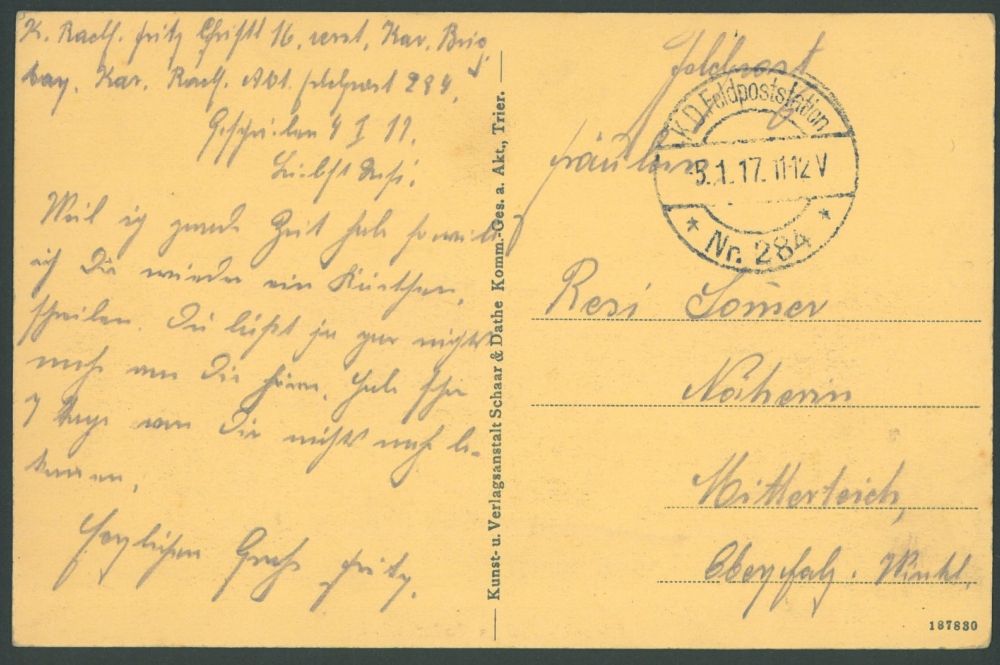 K. Radf. Fritz Christl 16. resrt. Kav. Brig
bay. Kav. Radf. Abt. Feldpost 284.
Geschrieben 4 I 17
Liebste Resi.
Weil ich gerade Zeit habe so will
ich Dir wieder ein Kärtchen
schreiben. Du läßt ja gar nichts
mehr von Dir hören. Habe schon
7 Tage von Dir nichts mehr be-
kommen.
Herzlichen Gruß Fritz.
Kunst- u. Verlagsanstalt Schaar & Dathe Komm.-Ges. a. Akt., Trier.
Feldpost
K.D. Feldpoststation
5.1.17. 11-12 V
* Nr. 284 *
Fräulein
Resi Somer
Näherin
Mitterteich,
Oberpfalz.
187830